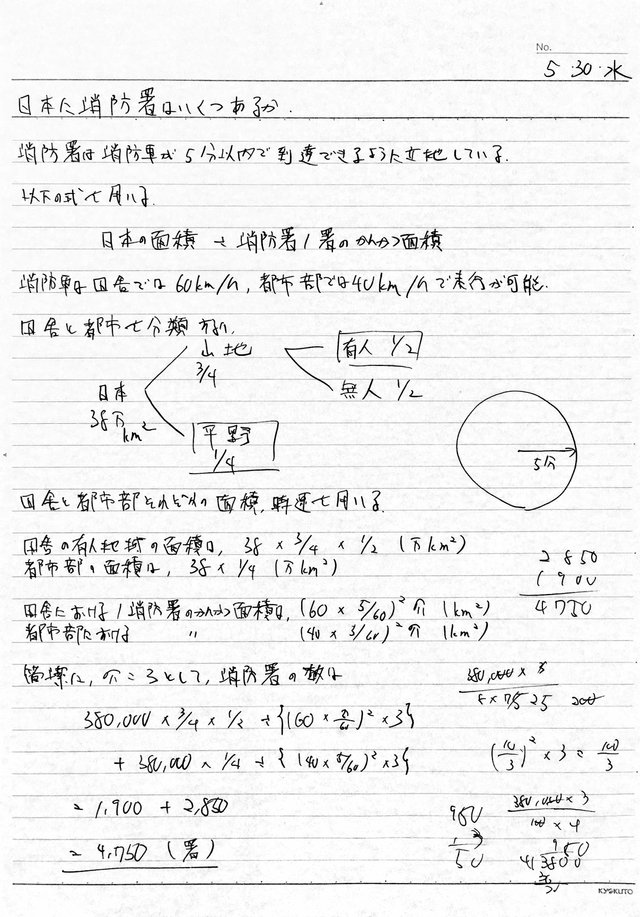 No.
5・30・水
日本に消防署はいくつあるか.
消防署は消防車が5分以内で到達できるように立地している.
以下の式を用いる.
日本の面積 ÷ 消防署1署のかんかつ面積
消防車は田舎では60km/h, 都市部では40km/hで走行が可能.
田舎と都市を分類
山地 3/4
有人 1/2
無人 1/2
日本
38万km²
平野 1/4
5分
田舎と都市部それぞれの面積, 時速を用いる.
田舎の有人地域の面積は, 38 × 3/4 × 1/2 (万km²)
都市部の面積は, 38 × 1/4 (万km²)
2850
1900
4750
田舎における1消防署のかんかつ面積は, (60 × 5/60)² π (km²)
都市部における 〃 (40 × 5/60)² π (km²)
簡単に, π ≒ 3として, 消防署の数は
380,000 × 3/4 × 1/2 ÷ {(60 × 5/60)² × 3}
+ 380,000 × 1/4 ÷ {(40 × 5/60)² × 3}
(10/3)² × 3 = 100/3
= 1,900 + 2,850
380,000 × 3
100 × 4
950
= 4,750 (署)
KYOKUTO